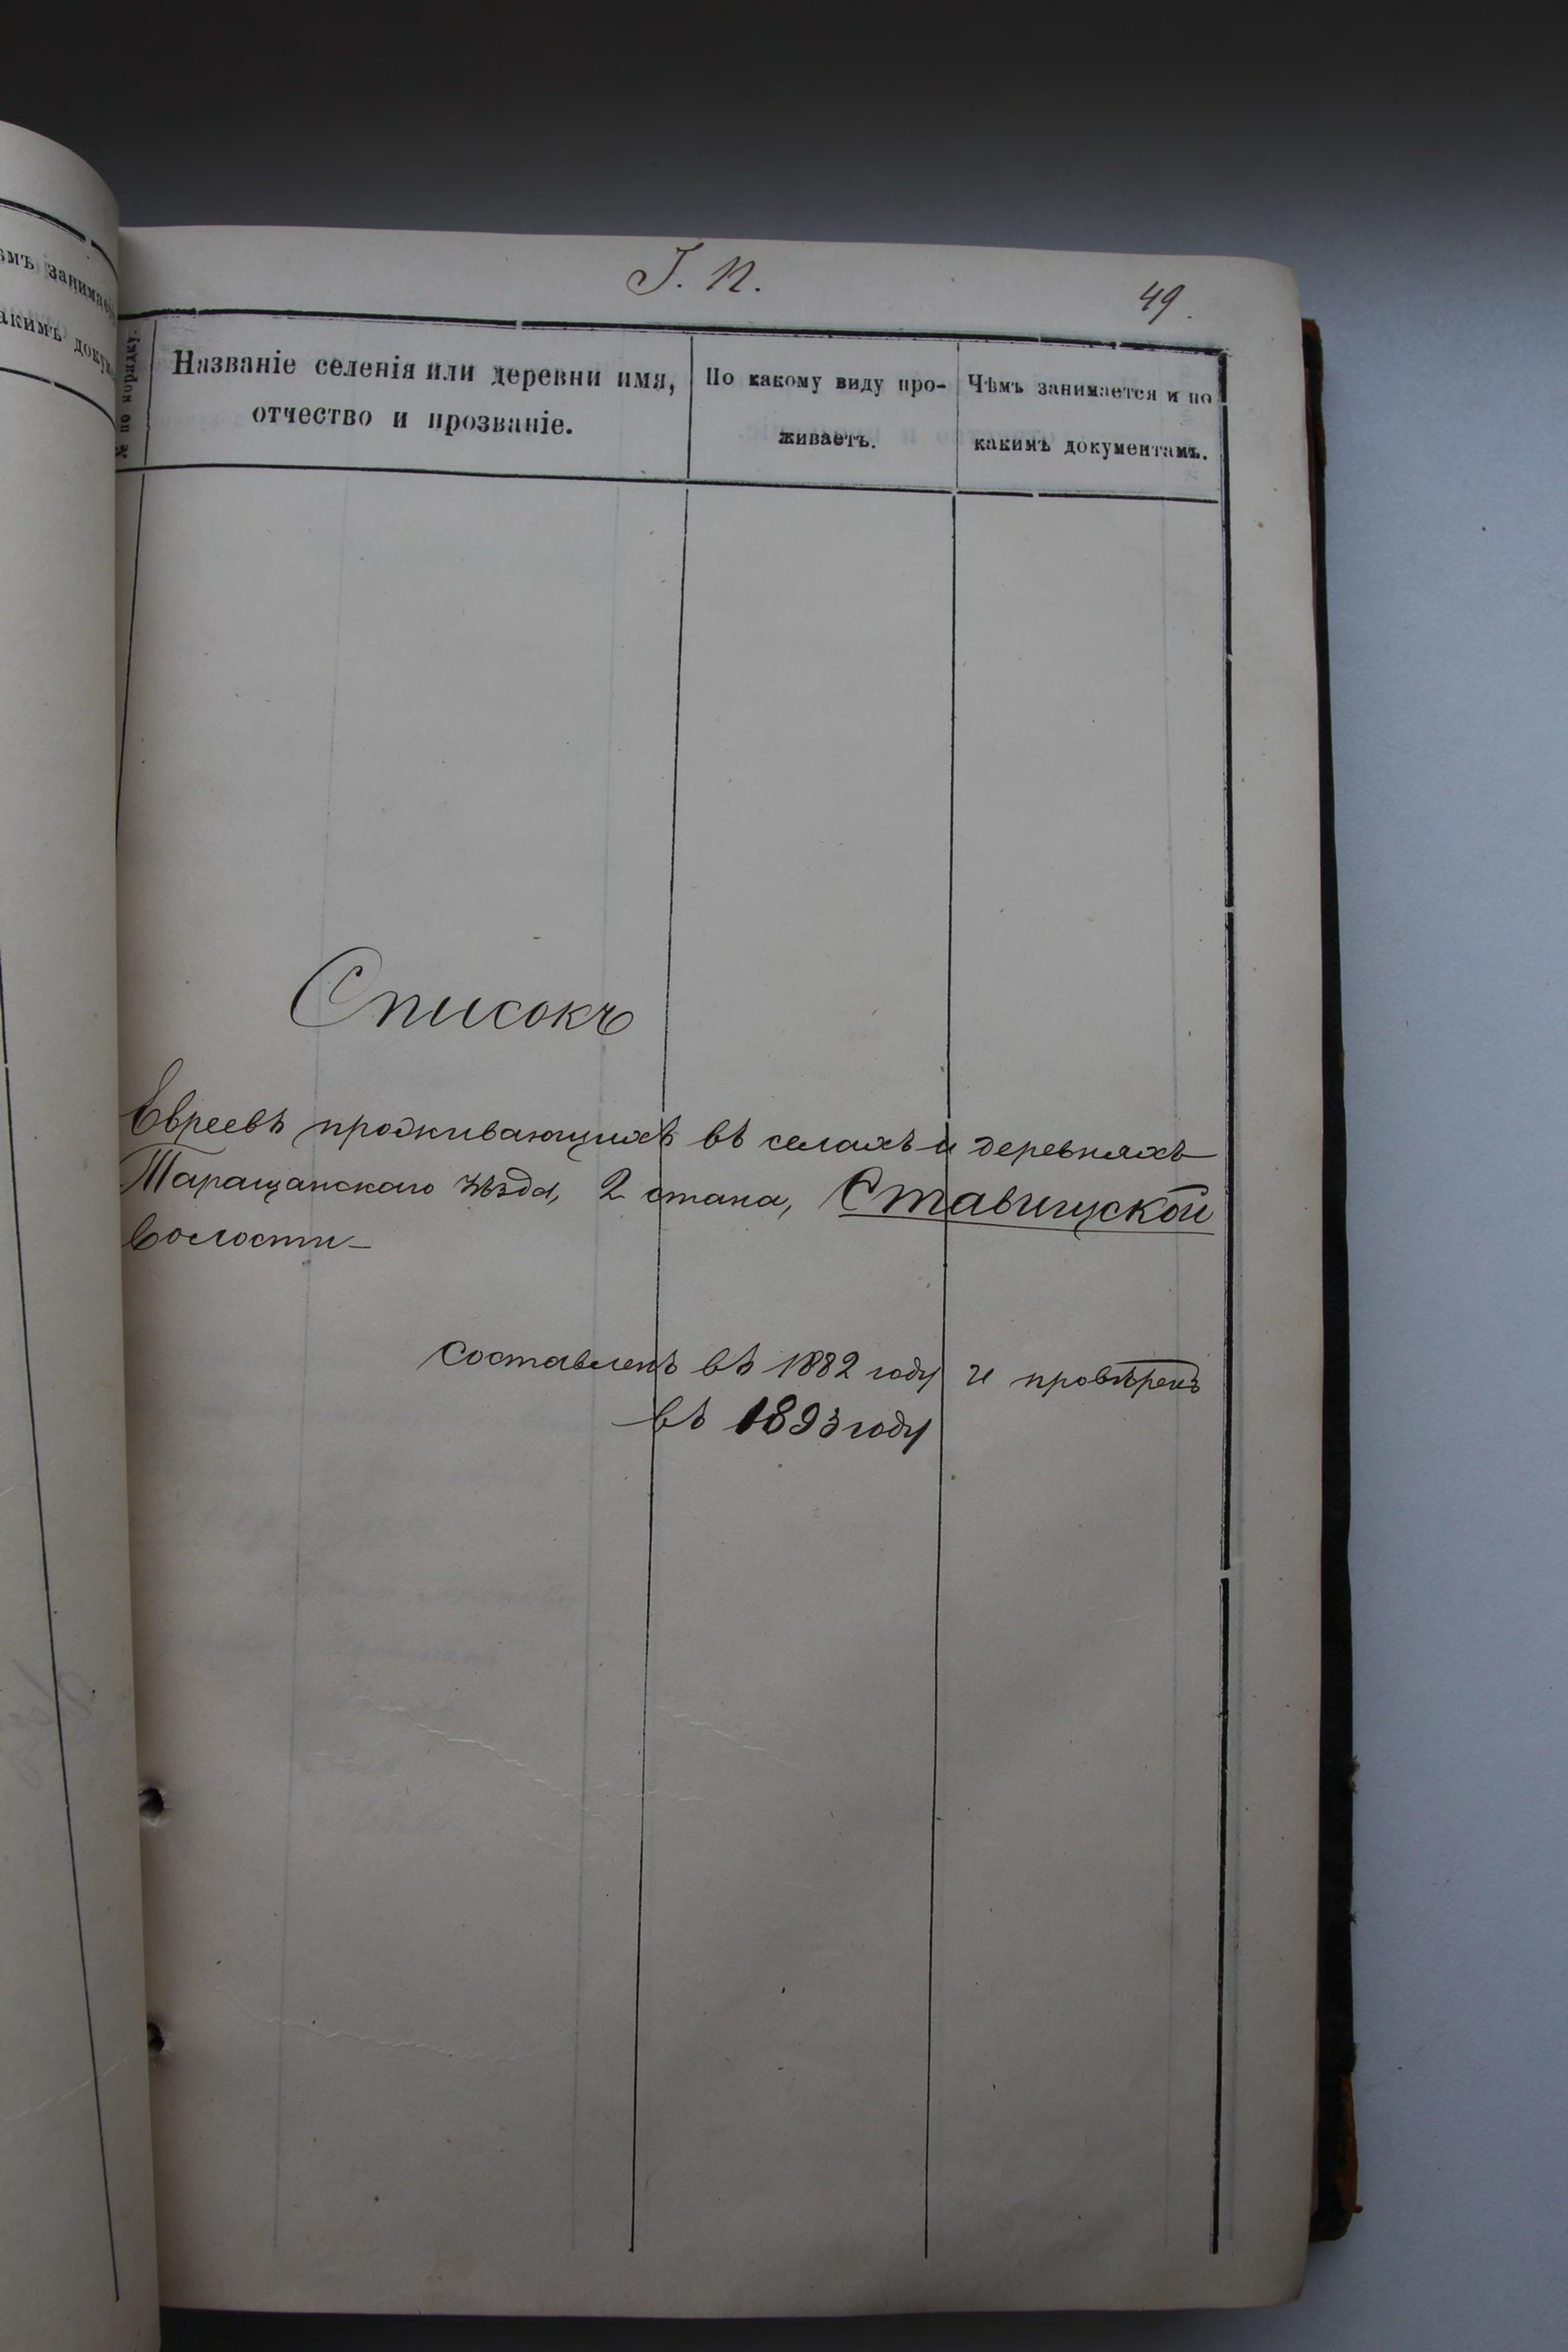 емъ занимает
акимъ докум
J. N.
49.
№ по порядку.
Названіе селенія или деревни имя,
отчество и прозваніе.
По какому виду про-
живаетъ.
Чѣмъ занимается и по
какимъ документамъ.
Списокъ
Евреевъ проживающихъ въ селахъ и деревняхъ
Таращанскаго уѣзда, 2 стана, Ставищской
волости
Составленъ въ 1882 году и провѣренъ
въ 1893 году